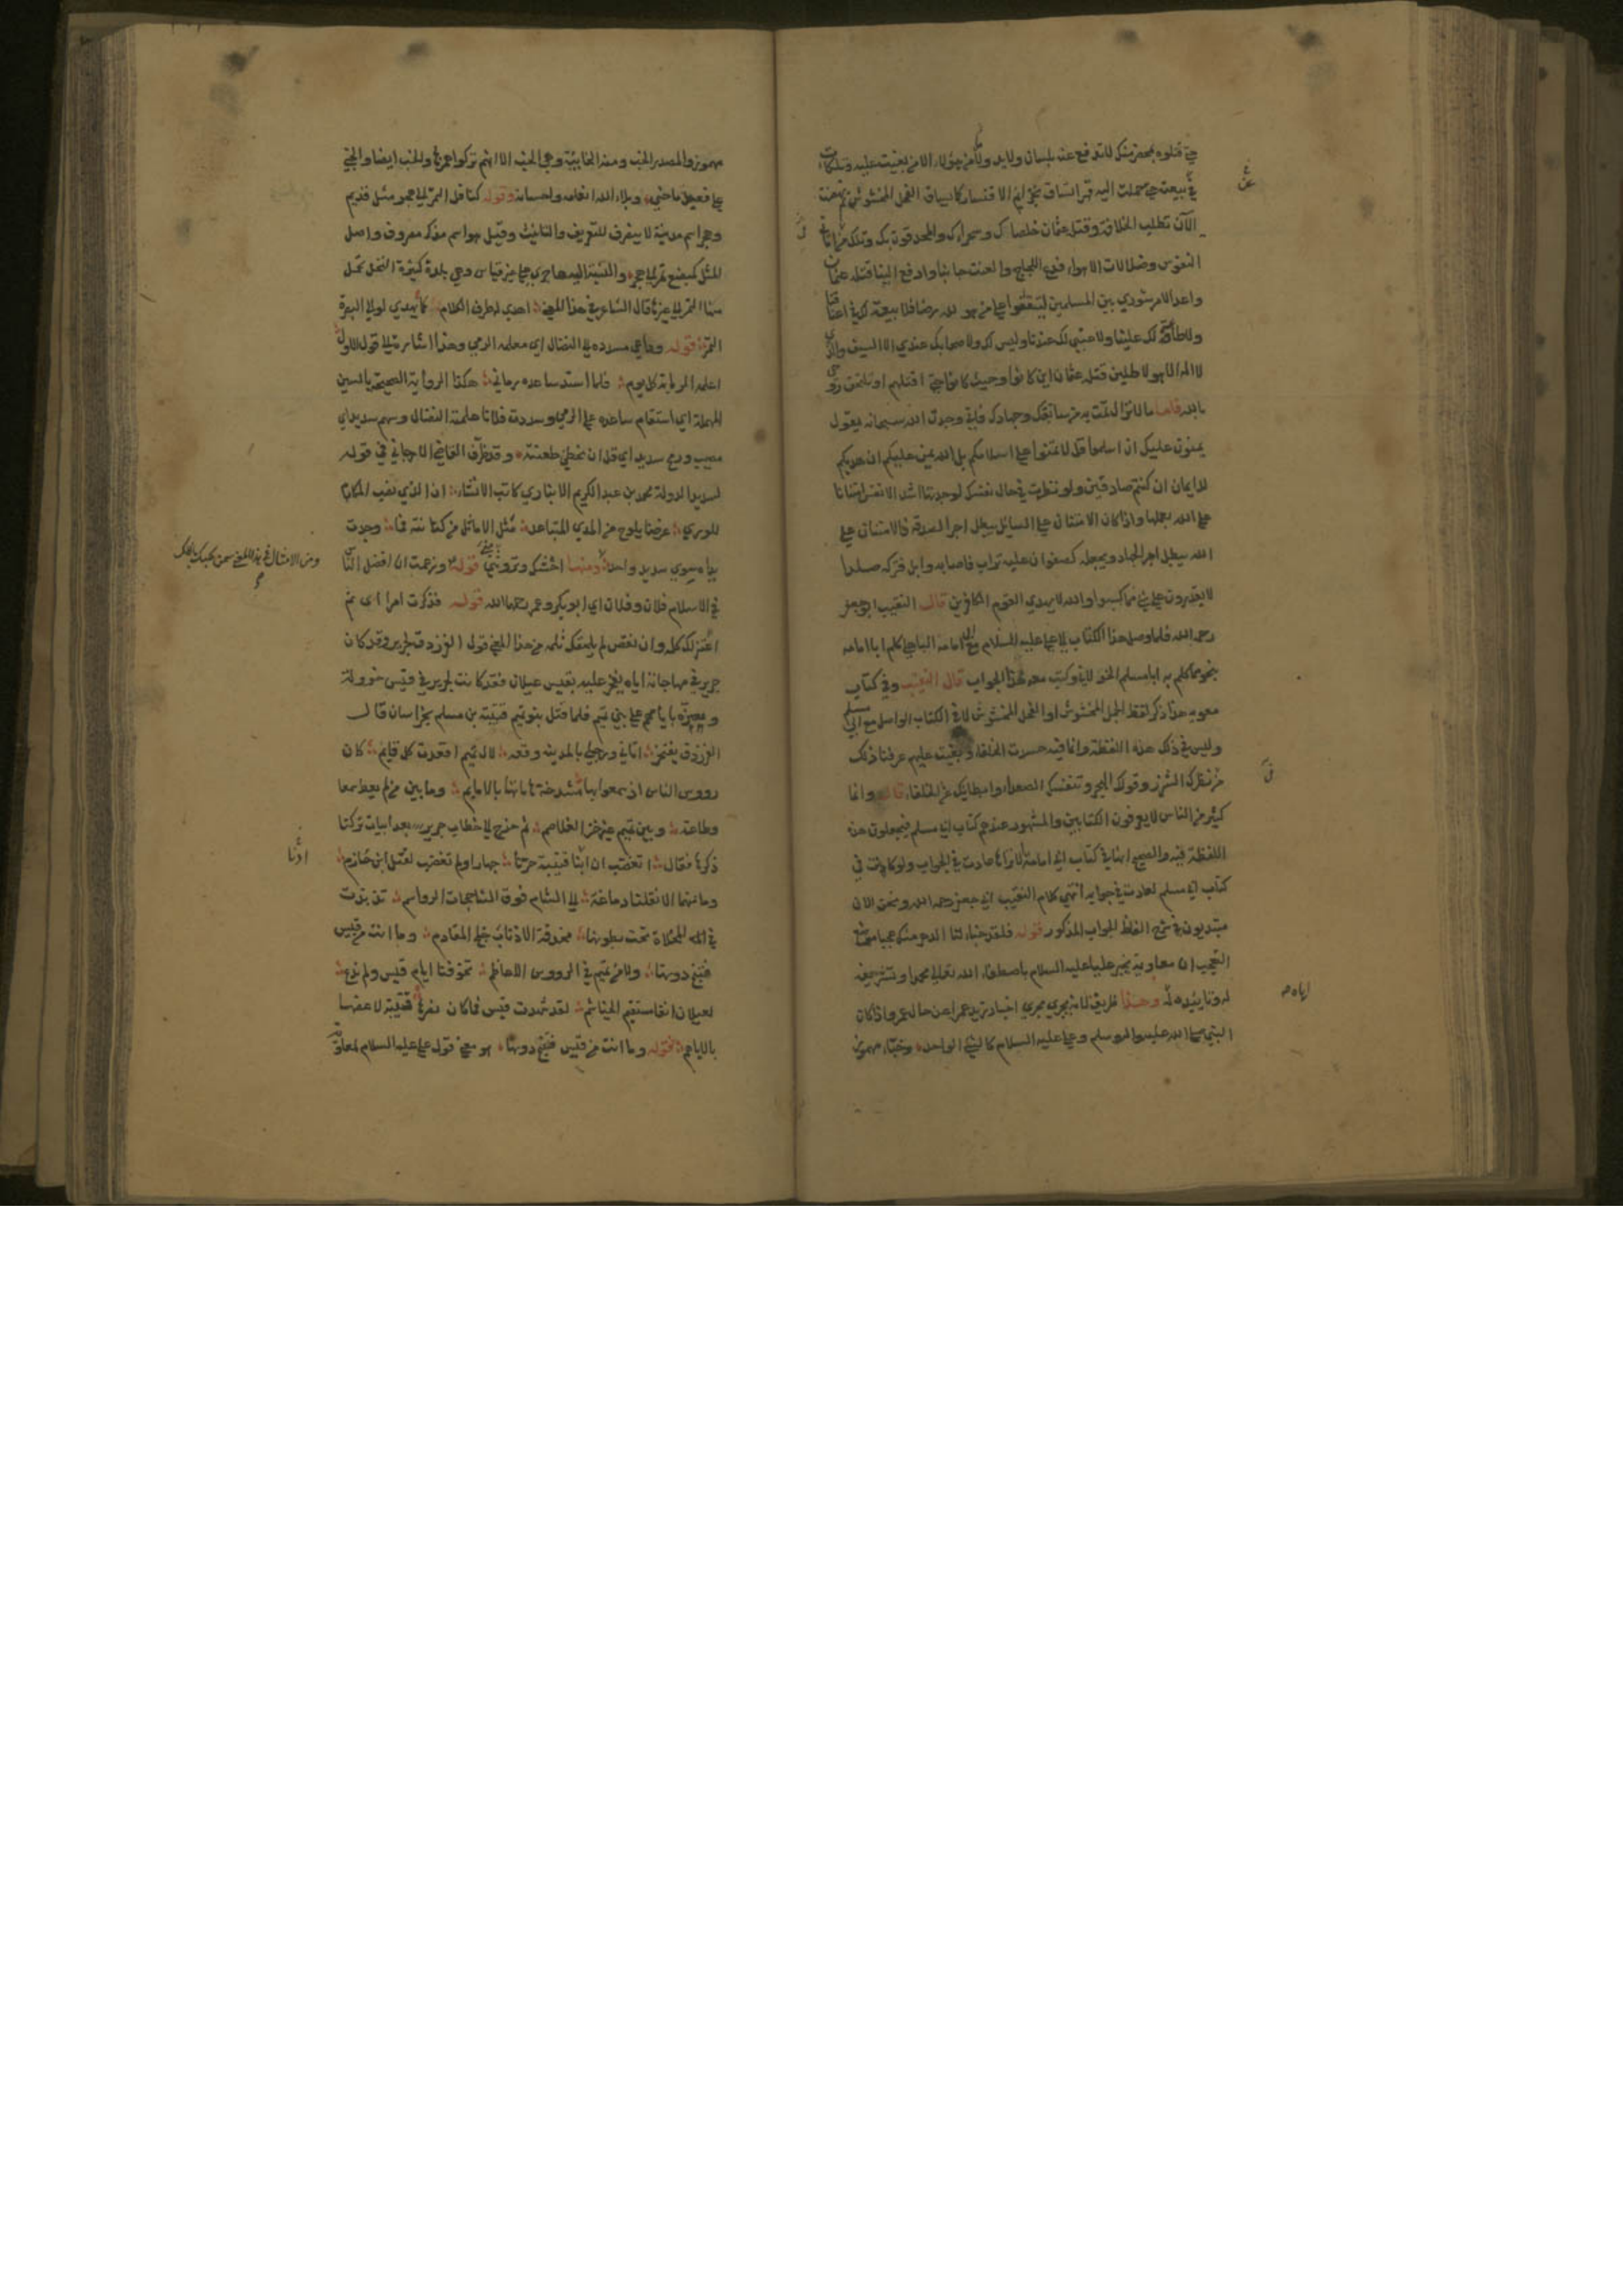 حتى قتلوه بمحضر منك لا تدفع عنه بلسان ولا يد وما من هؤلاء الا من بغيت عليه وتلكأت
في بيعته حتى حملت اليه قهرا تساق بخزايم الاقتسار كما يساق الفحل المخشوش ثم نهضت
الآن تطلب الخلافة وقتلة عثمان خلصاؤك وسجراؤك والمحدقون بك وتلك من اماني
النفوس وضلالات الاهواء فدع اللجاج والعنت جانبا وادفع الينا قتلة عثمان
واعد الامر شورى بين المسلمين ليتفقوا على من هو لله رضا فلا بيعة لك في اعناقنا
ولا طاعة لك علينا ولا عتبى لك عندنا وليس لك ولا صحابك عندي الا السيف والذي
لا اله الا هو لاطلبن قتلة عثمان اين كانوا وحيث كانوا حتى اقتلهم او تلتحق روحي
بالله فاما ما لا تزال تمت به من سابقتك وجهادك فاني وجدت الله سبحانه يقول
يمنون عليك ان اسلموا قل لا تمنوا علي اسلامكم بل الله يمن عليكم ان هديكم
للايمان ان كنتم صادقين ولو نظرت في حال نفسك لوجدتها اشد الانفس امتنانا
على الله بعملها واذا كان الامتنان على السائل يبطل اجر الصدقة فالامتنان على
الله يبطل اجر الجهاد ويجعله كصفوان عليه تراب فاصابه وابل فتركه صلدا
لا يقدرون على شئ مما كسبوا والله لا يهدي القوم الكافرين قال النقيب ابو جعفر
رحمه الله فلما وصل هذا الكتاب الى علي عليه السلام مع ابي امامة الباهلي كلم ابا امامه
بنحو مما كلم به ابا مسلم الخولاني وكتب معه هذا الجواب قال النقيب وفي كتاب
معويه هذا ذكر لفظ الجمل المخشوش او الفحل المخشوش لا في الكتاب الواصل مع ابي مسلم
وليس في ذلك هذه اللفظة وانما فيه حسدت الخلفاء وبغيت عليهم عرفنا ذلك
من نظرك الشزر وقولك الهجر وتنفسك الصعداء وابطائك عن الخلفاء قال وانما
كثير من الناس لا يعرفون الكتابين والمشهور عندهم كتاب ابي مسلم فيجعلون هذه
اللفظة فيه والصحيح انها في كتاب ابي امامة الا تراها عادت في الجواب ولو كانت في
كتاب ابي مسلم لعادت في جوابه انتهى كلام النقيب ابي جعفر رحمه الله ونحن الان
مبتدءون في شرح الفاظ الجواب المذكور قوله فلقد خبأ لنا الدهر منك عجبا موضع
التعجب ان معاوية يخبر عليا عليه السلام باصطفاء الله تعالى محمدا وتشريفه
له وتاييده له وهذا ظريف لانه يجري مجرى اخبار زيد عمرا عن حال عمرو اذ كان
النبي صلى الله عليه واله وسلم وعلي عليه السلام كالشئ الواحد وخبأ مهموز
اياه صح
مهموز والمصدر الخبء ومنه الخابية وهي الخبء الا انهم تركوا همزها والخبء ايضا والخبي
على فعيل ما خبئ وبلاء الله انعامه واحسانه وقوله كناقل التمر الى هجر مثل قديم
وهجر اسم مدينة لا ينصرف للتعريف والتانيث وقيل هو اسم مذكر مصروف واصل
المثل كمبضع تمر الى هجر والنسبة اليه هاجري على غير قياس وهي بلدة كثيرة النخل تحمل
منها التمر الى غيرها قال الشاعر في هذا المعنى اهدي له طرف الكلام كما يهدى لوالي البصرة
التمر قوله وداعي مسدده الى النضال اي معلمه الرمي وهذا اشارة الى قول الاول
اعلمه الرماية كل يوم فلما استد ساعده رماني هكذا الرواية الصحيحة بالسين
المهملة اي استقام ساعده على الرمي وسددت فلانا علمته النضال وسهم سديد اي
مصيب ورمح سديد اي قل ان تخطئ طعنته وقد ظرف القاضي الارجاني في قوله
لسديد الدولة محمد بن عبد الكريم الانباري كاتب الانشاء ان الذي نصب المكارم
للورى غرضا يلوح من المدى المتباعد نثل الاماثل من كنانته فما وجدت
يداه سوى سديد واحد ومن الامثال في هذا المعنى سمن كلبك ياكلك ومنها احشك وتروثني قوله وزعمت ان افضل الناس
في الاسلام فلان وفلان اي ابو بكر وعمر رحمهما الله قوله فذكرت امرا ان تم
اعتزلك كله وان نقص لم يلحقك ثلمه من هذا المعنى قول الفرزدق لجرير وقد كان
جرير في مهاجاته اياه يفخر عليه بقيس عيلان فقد كانت لجرير في قيس خؤولة
ويعيره بايامهم على بني تميم فلما قتل بنو تميم قتيبة بن مسلم بخراسان قال
الفرزدق يفتخر اتاني ورحلي بالمدينة وقعة لآل تميم اقعدت كل قايم كان
رووس الناس اذ سمعوا بها مشدخة هاماتها بالامايم وما بين من لم يعط سمعا
وطاعة وبين تميم غير حز الغلاصم ثم خرج الى خطاب جرير بعد ابيات تركنا
ذكرها فقال اتغضب ان اذنا قتيبة حزتا جهارا ولم تغضب لقتل ابن خازم
وما منهما الا نقلنا دماغه الى الشام فوق الشاحجات الرواسم تذبذب
في المخلاة تحت بطونها محذوفة الاذناب جلح المقادم وما انت من قيس
فتنبح دونها ولا من تميم في الرووس الاعاظم تخوفنا ايام قيس ولم تدع
لعيلان انفا مستقيم الخياشم لقد شهدت قيس فما كان نصرها قتيبة الا عضها
بالاباهم فقوله وما انت من قيس فتنبح دونها هو معنى قول علي عليه السلام لمعاوية